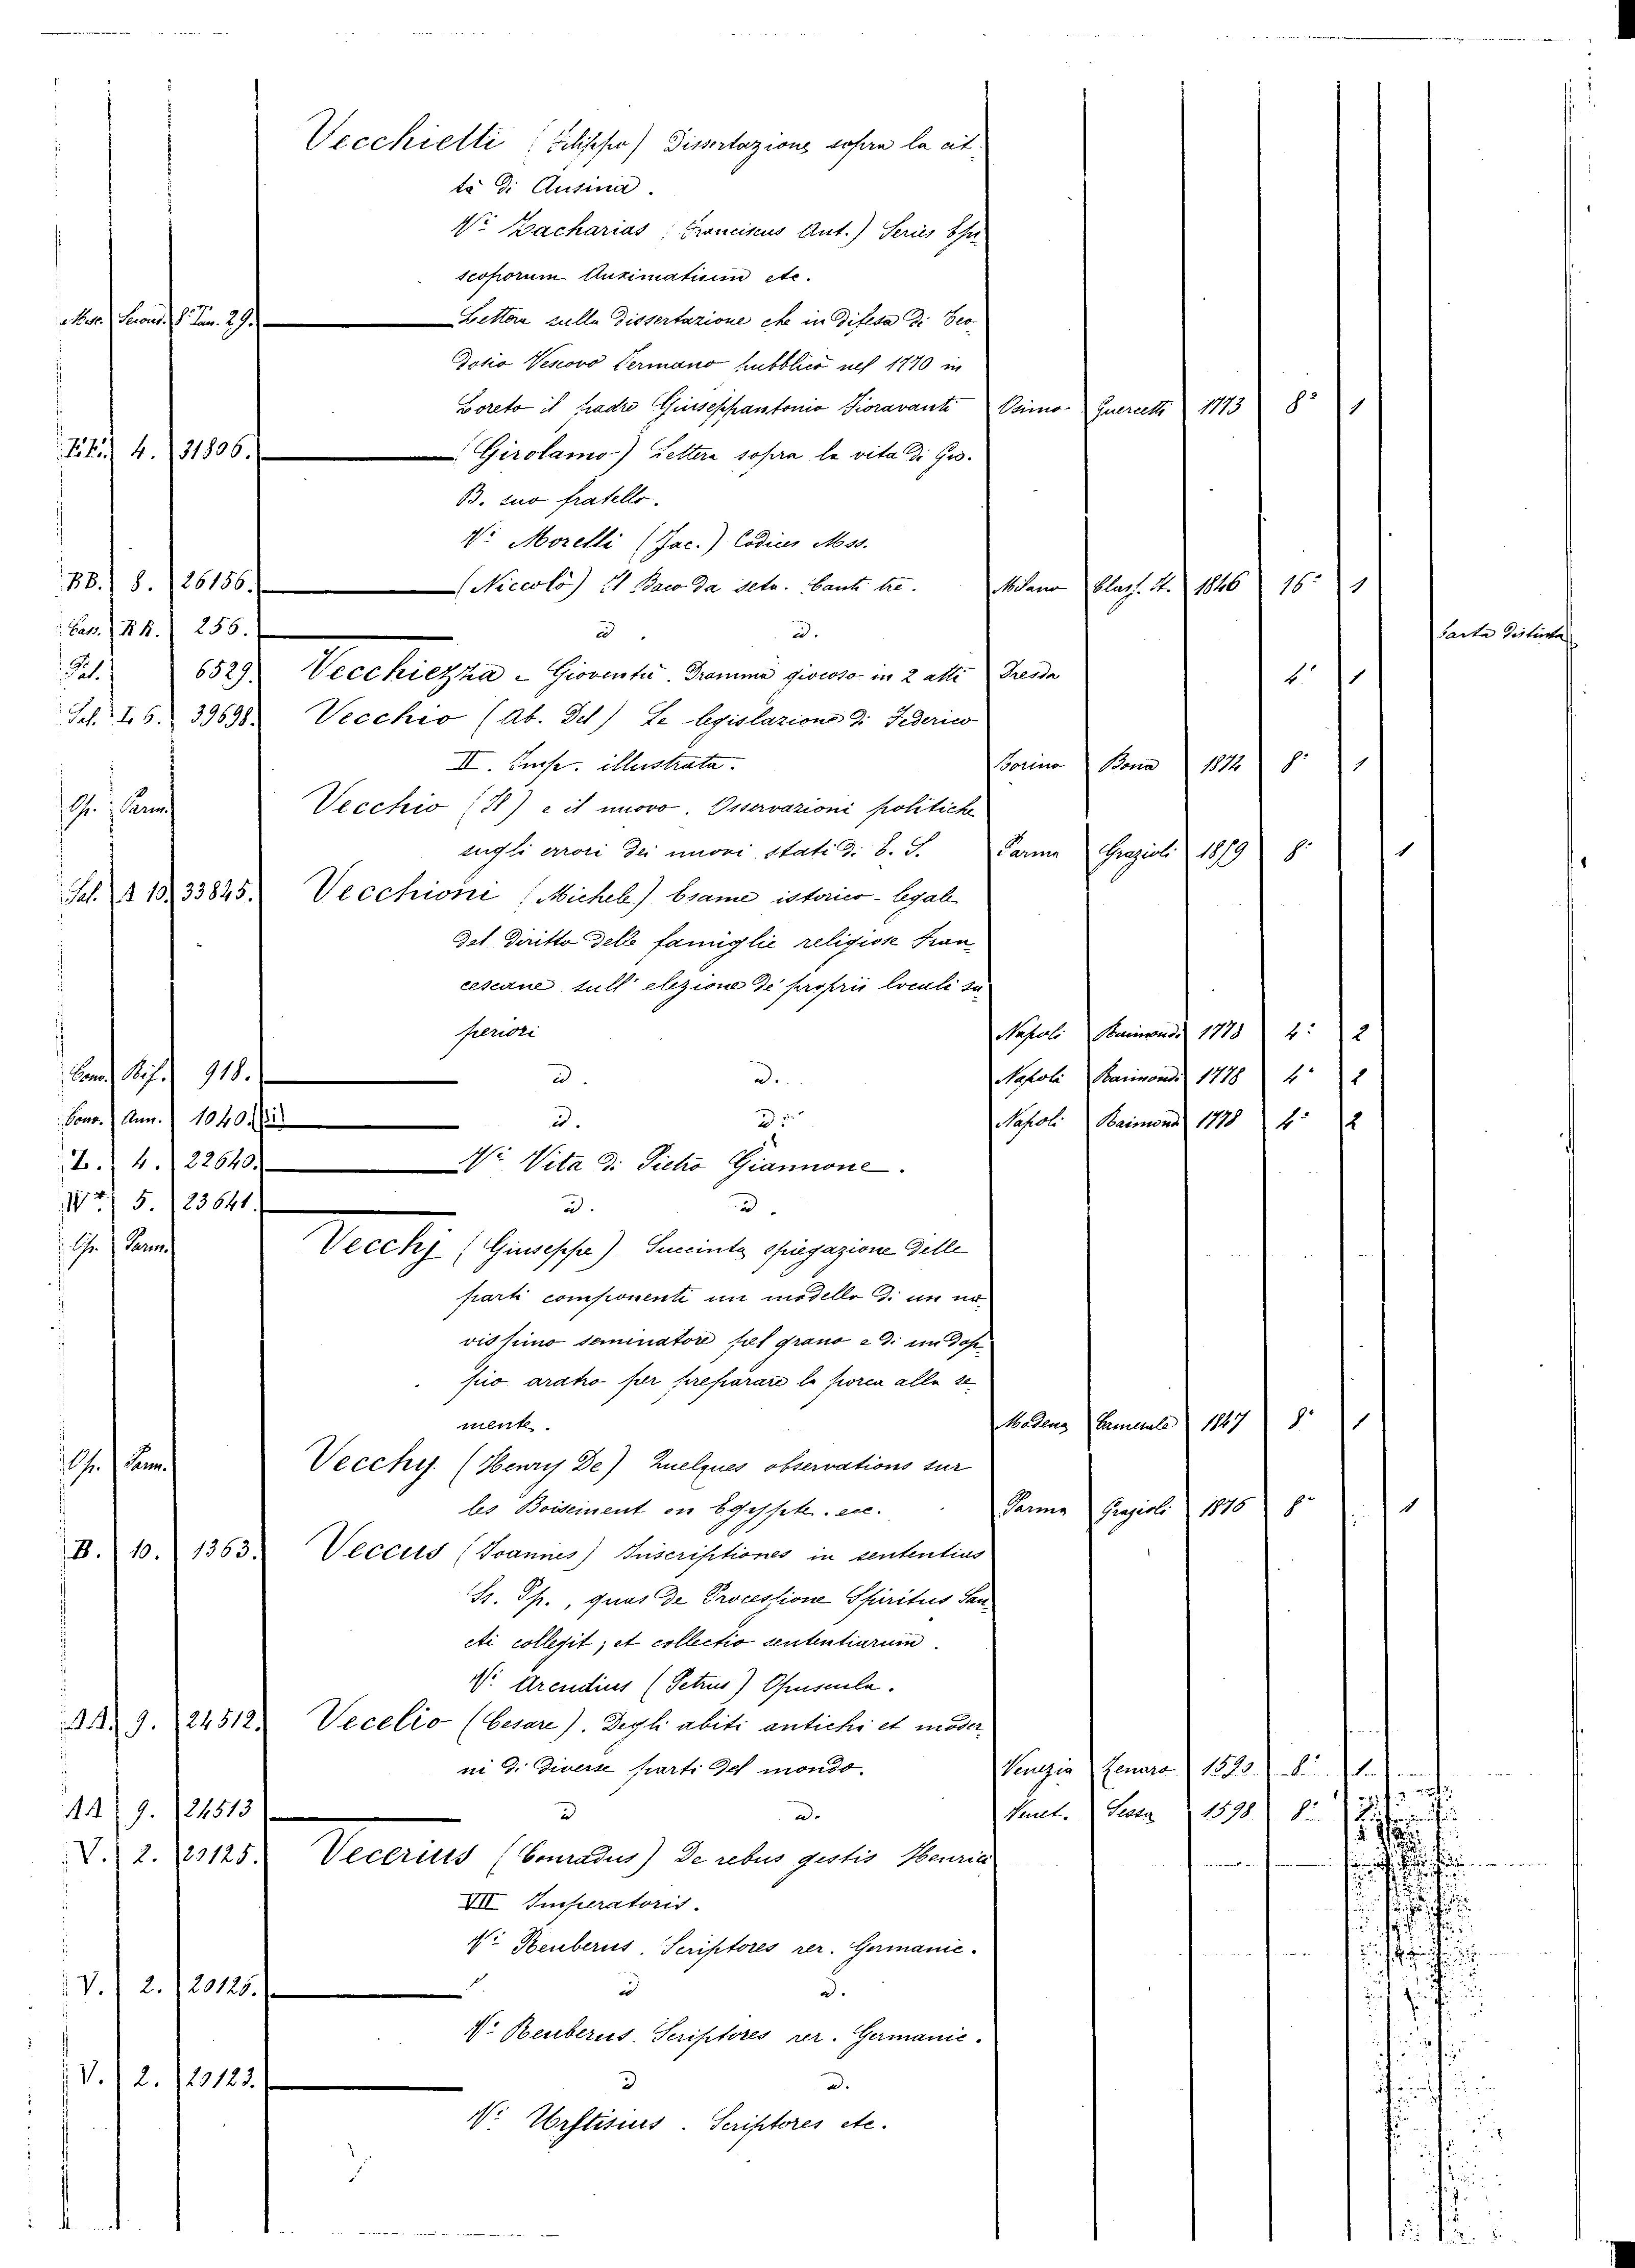 Vecchietti (Filippo) Dissertazione sopra la cit
tà di Ausina.
V. Zacharias, Franciscus Ant.) Series Epi
scoporum Auximatium etc.
Misc. 8° Tom. 29. Lettera sulla dissertazione che in difesa di Teo
dosio Vescovo Fermano pubblicò nel 1770 in
Loreto il padre Giuseppantonio Fioravanti Osimo Quercetti 1773 8° 1
4. 31806. Girolamo) Lettera sopra la vita di Gio.
B. suo fratello.
V. Morelli (Jac.) Codices Mss.
BB. 8. 26156. (Niccolò) Il Baco da seta. Canti tre. Milano Class. It. 1846 16° 1
Cass. RR. 256. id. id. Carta distinta
Pal. 6529. Vecchiezza e Gioventù. Dramma giocoso in 2 atti Dresda 4° 1
Sal. I. 6. 39698. Vecchio (Ab. Del) La legislazione di Federico
II. Imp. illustrata. Torino Bona 1874 8° 1
Op. Parm. Vecchio (Il) e il nuovo. Osservazioni politiche
sugli errori dei nuovi stati di E. S. Parma Grazioli 1879 8° 1
Sal. A 10. 33845. Vecchioni (Michele) Esame istorico-legale
del Diritto delle famiglie religiose Fran
cescane sull' elezione de' proprii locali su
periori Napoli Raimondi 1778 4° 2
Conv. Rif. 918. id. id. Napoli Raimondi 1778 4° 2
Conv. Ann. 1040. id. id. Napoli Raimondi 1778 4° 2
4. 22640. V. Vita di Pietro Giannone.
5. 23641. id. id.
Op. Parm. Vecchj (Giuseppe). Succinta spiegazione delle
parti componenti un modello di un no
vissimo seminatore pel grano e di un dop
pio aratro per preparare la porca alla se
mente. Modena Camerale 1847 8° 1
Op. Parm. Vecchy. (Henry De) Quelques observations sur
les Boisement en Egypte. ecc. Parma Grazioli 1876 8° 1
B. 10. 1363. Veccus (Joannes) Inscriptiones in sententias
Ss. Pp., quas de Processione Spiritus San
cti collegit; et collectio sententiarum.
V. Arcudius (Petrus) Opuscula.
AA. 9. 24512. Vecelio (Cesare). Degli abiti antichi et moder
ni di diverse parti del mondo. Venezia Zenaro 1590. 8° 1
AA. 9. 24513 id id. Venet. Sessa 1598 8°
V. 2. 20125. Vecerius (Conradus) De rebus gestis Henrici
VII Imperatoris.
V. Reuberus. Scriptores rer. Germanic.
V. 2. 20126. id id.
V. Reuberus. Scriptores rer. Germanic.
V. 2. 20123. id id.
V. Urstisius. Scriptores etc.